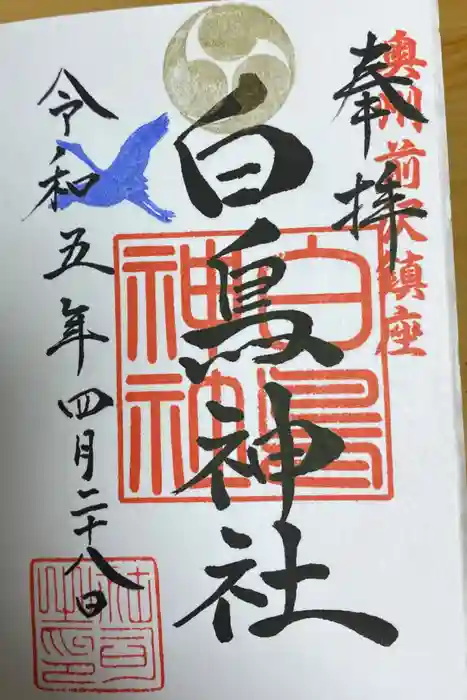 奥州前沢鎮座
奉拝
白鳥神社
白鳥神社
令和五年四月二十八日
社司之印